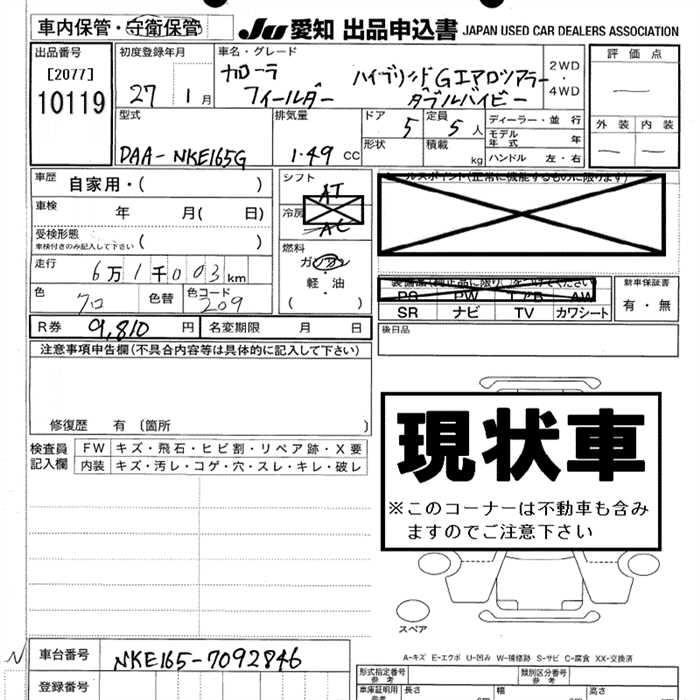 車内保管・守衛保管 JU 愛知 出品申込書 JAPAN USED CAR DEALERS ASSOCIATION
出品番号 [2077] 10119
初度登録年月 27 1月
車名・グレード
カローラ ハイブリッドGエアロツアラー
フィールダー ダブルバイビー
2WD・4WD
評価点 —
外装 内装
— —
型式 DAA-NKE165G
排気量 1.49 cc
ドア 5 定員 5人
形状 積載 kg
ディーラー・並行
モデル年式 年
ハンドル 左・右
車歴 自家用・( )
車検 年 月( 日)
受検形態 ( )
車検付きのみ記入して下さい
走行 6万1千003km
色 クロ 色替 色コード 209
シフト AT
冷房 AC
燃料 ガソリン・軽油 ( )
セールスポイント(正常に機能するものに限ります)
装備品(純正品に限り○をつけてください)
PS PW エアB AW
SR ナビ TV カワシート
新車保証書 有・無
後日品
R券 9,810 円 名変期限 月 日
注意事項申告欄(不具合内容等は具体的に記入して下さい)
修復歴 有 〔箇所 〕
検査員記入欄
FW キズ・飛石・ヒビ割・リペア跡・X要
内装 キズ・汚レ・コゲ・穴・スレ・キレ・破レ
現状車
※このコーナーは不動車も含み
ますのでご注意下さい
スペア
A-キズ E-エクボ U-凹み W-補修跡 S-サビ C-腐食 XX-交換済
N 車台番号 NKE165-7092846
登録番号
形式指定番号 参考 類別区分番号 参考
車庫証明用参考 長さ 幅 高さ